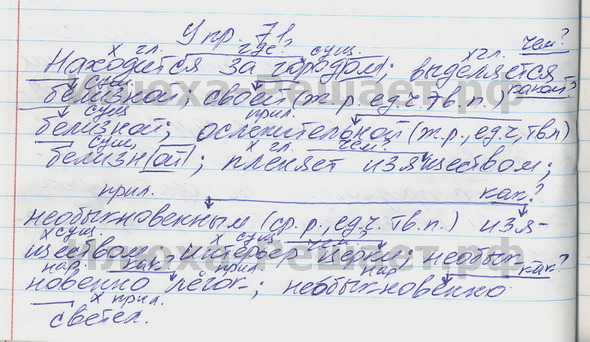 Упр. 71.
х гл. где? сущ. х гл. чем?
Находится за городом; выделяется
сущ. какой?
белизной, своей (ж.р. ед.ч. тв.п.)
сущ. прил.
белизной; ослепительной (ж.р., ед.ч, тв.п)
сущ. х гл. чем?
белизной; пленяет изяществом;
прил. как?
необыкновенным (ср.р., ед.ч. тв.п.) изя-
х сущ. х сущ.
ществом, интерьер церкви; необык-
нар. как прил. нар как?
новенно лёгок; необыкновенно
х прил.
светел.
Илюха-Решает.рф
Илюха-Решает.рф